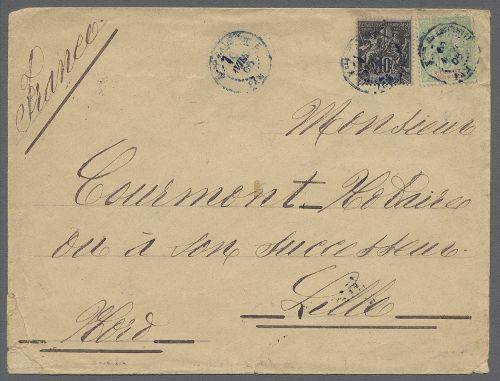 France
Monsieur
Courmont_ Notaire
ou à son successeur.
Lille
Nord
10